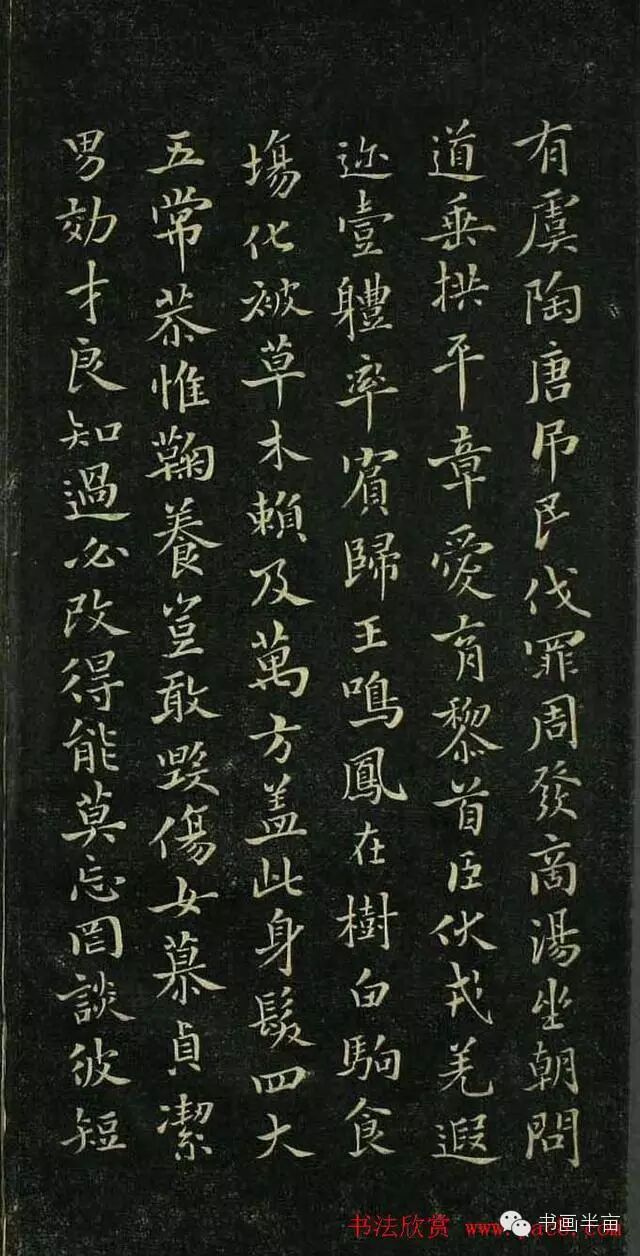 有虞陶唐吊民伐罪周發商湯坐朝問
道垂拱平章愛育黎首臣伏戎羌遐
迩壹軆率賓歸王鳴鳳在樹白駒食
塲化被草木賴及萬方盖此身髮四大
五常恭惟鞠養豈敢毀傷女慕貞潔
男効才良知過必改得能莫忘罔談彼短
书法欣赏
书画半亩